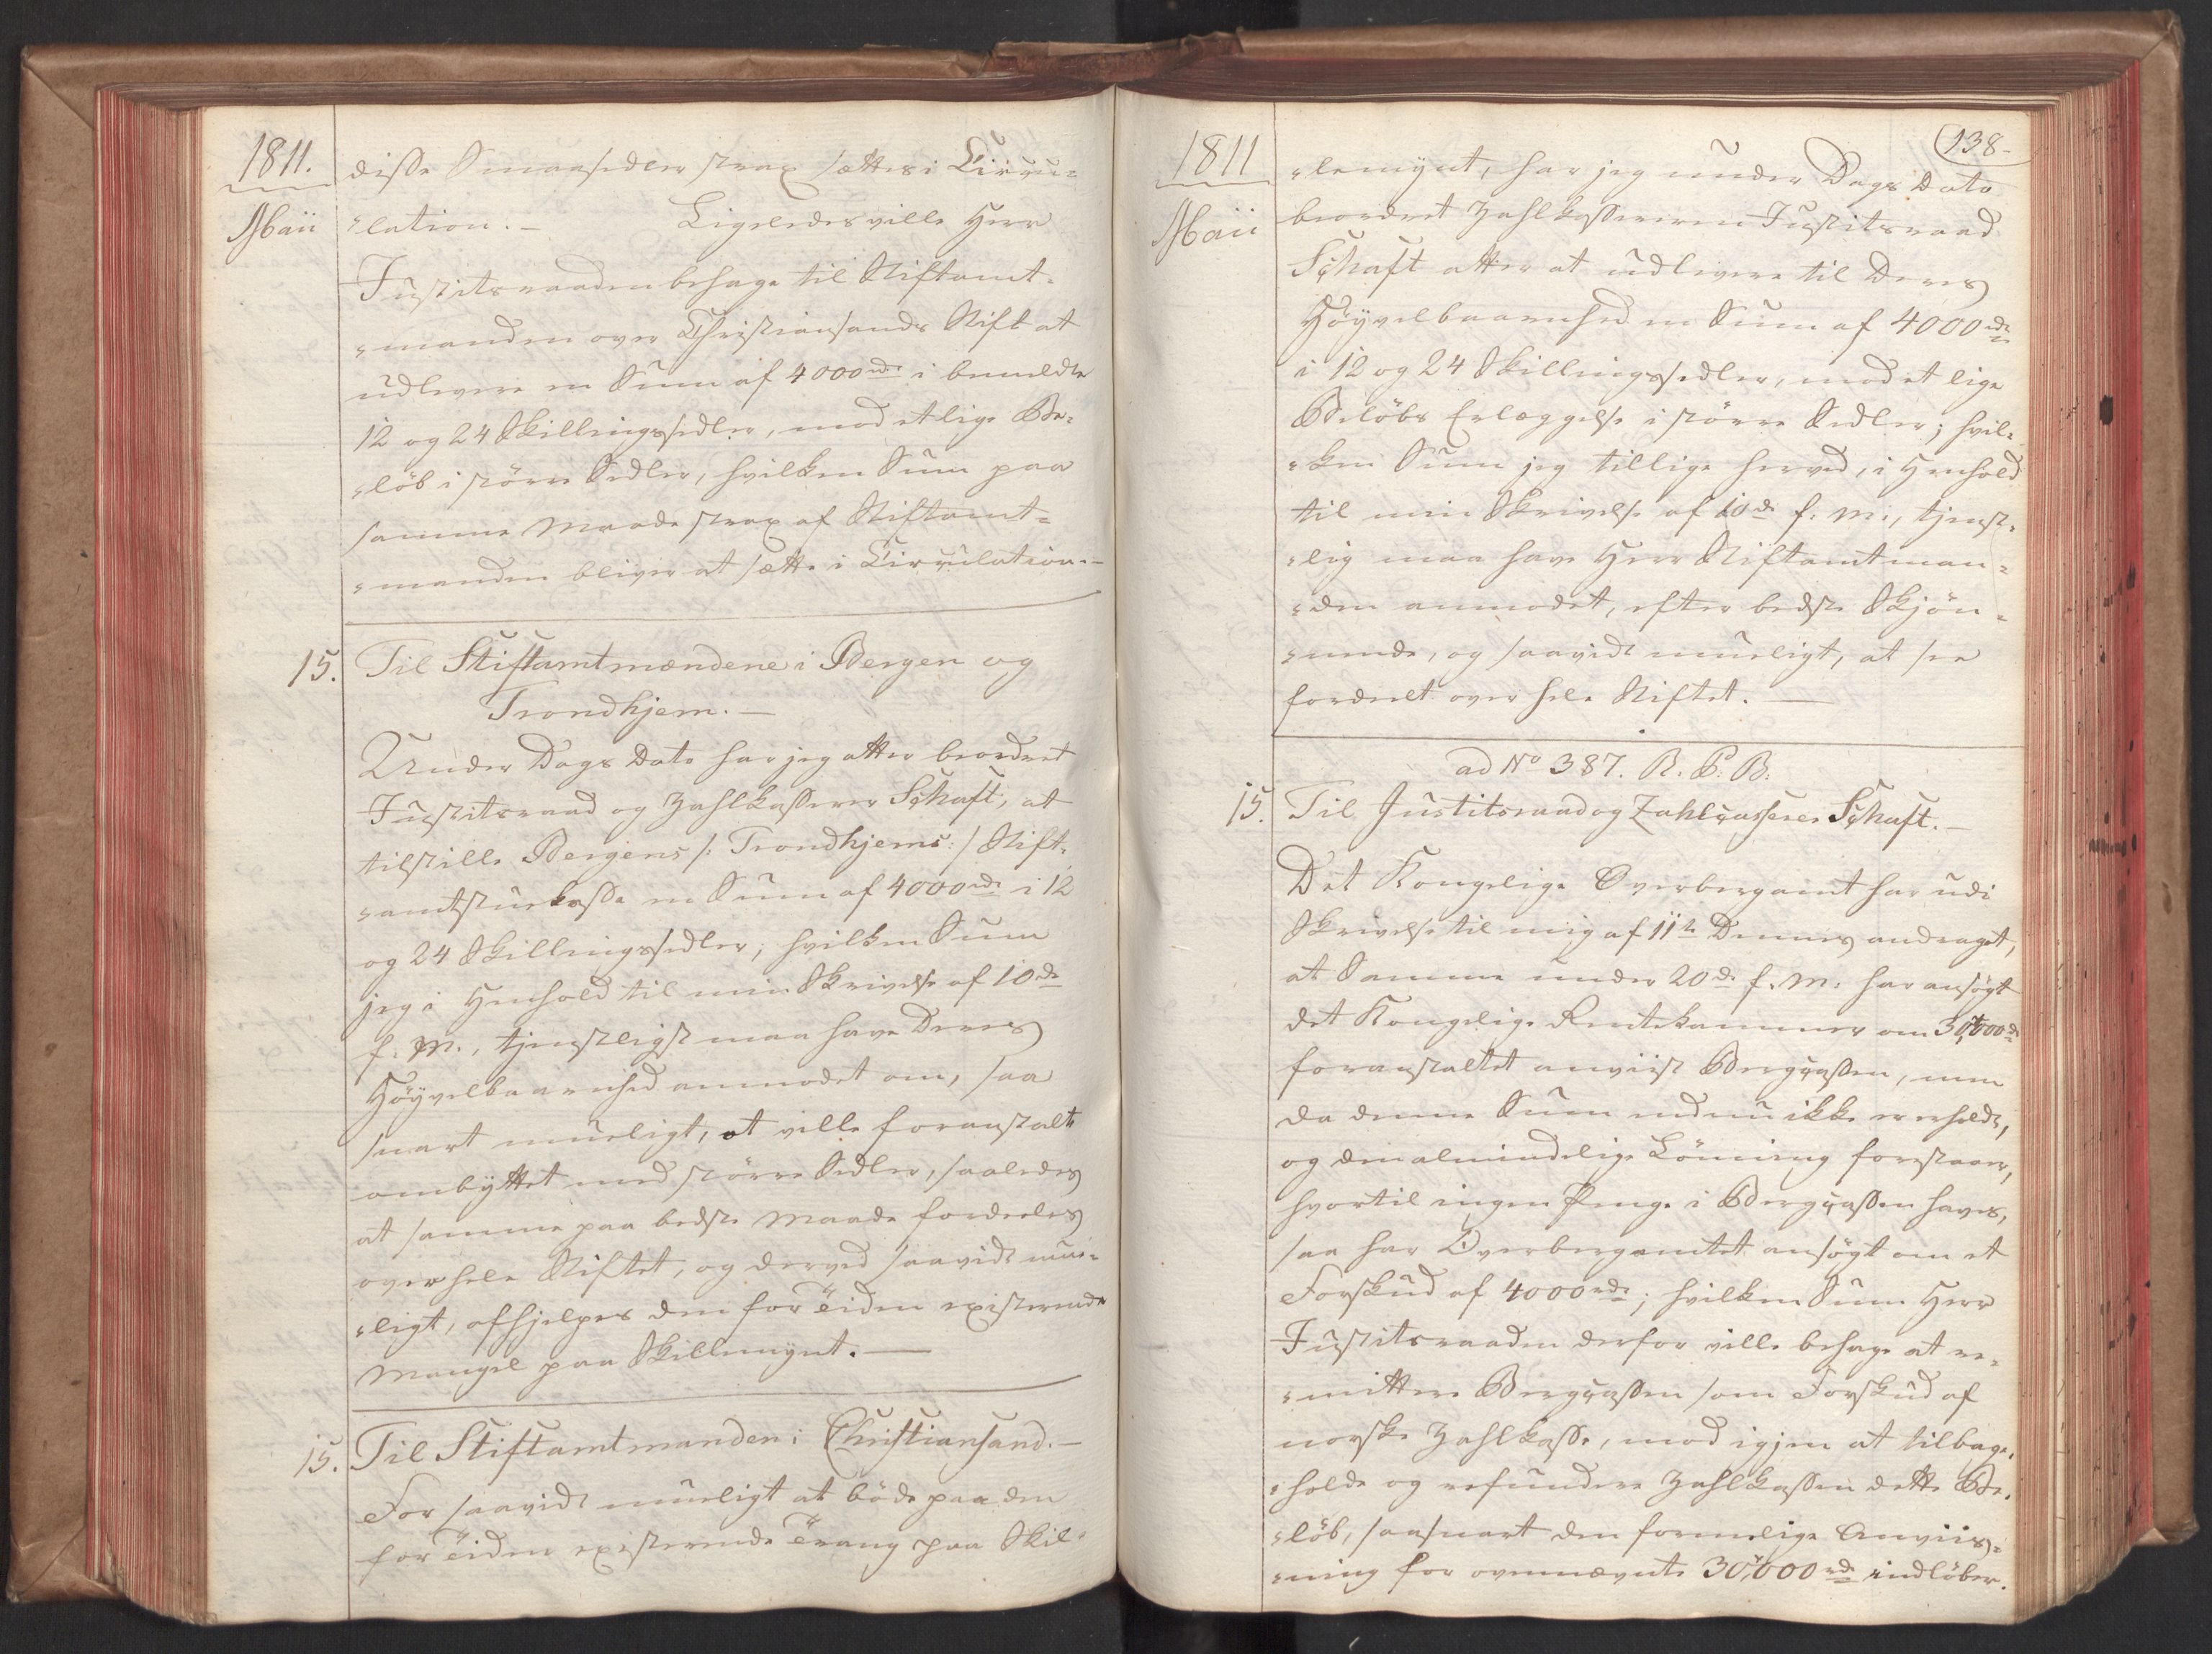 1811.
Maii
disse Smaasedler strax sættes i Circu-
-lation. - Ligeledes ville Herr
Justitsraaden behage til Stiftamt-
-manden over Christiansands Stift at
udlevere en Sum af 4000 rdr i bemeldte
12 og 24 Skillingssedler, mod et lige Be-
-löb i större Sedler, hvilken Sum paa
samme Maade strax af Stiftamt-
-manden bliver at sætte i Circulation. -
15. Til Stiftamtmændene i Bergen og
Trondhjem. -
Under Dags Dato har jeg atter beordret
Justitsraad og Zahlkasserer Schaft, at
tilstille Bergens /: Trondhjems :/ Stift-
-amtstuekasse en Sum af 4000 rdr i 12
og 24 Skillingssedler; hvilken Sum
jeg i Henhold til min Skrivelse af 10de
f. M., tjenstligst maa have Deres
Höyvelbaarenhed anmodet om, saa
snart mueligt, at ville foranstalte
ombyttet med större Sedler, saaledes
at samme paa bedste Maade fordeeles
over hele Stiftet, og derved saavidt mue-
-ligt, afhjelpes den for Tiden existerende
Mangel paa Skillemynt. -
15. Til Stiftamtmanden i Christiansand. -
For saavidt mueligt at böde paa den
for Tiden existerende Trang paa Skil-
138-
1811
Maii
-lemynt, har jeg under Dags Dato
beordret Zahlkassereren Justitsraad
Schaft atter at udlevere til Deres
Höyvelbaarenhed en Sum af 4000 rdr
i 12 og 24 Skillingssedler, mod et lige
Belöbs Erlæggelse i större Sedler; hvil-
-ken Sum jeg tillige herved, i Henhold
til min Skrivelse af 10de f. M., tjenst-
-lig maa have Herr Stiftamtman-
-den anmodet, efter bedste Skjön-
-nende, og saavidt mueligt, at see
fordeelt over hele Stiftet. -
ad No 387. R. C. B.
15. Til Justitsraad og Zahlcasserer Schaft. -
Det Kongelige Overbergamt har udi
Skrivelse til mig af 11te Dennes andraget,
at Samme under 20de f. M. har ansögt
det Kongelige Rentekammer om 30,000 rd
foranstaltet anviist Bergcassen, men
da denne Sum endnu ikke er erholdt,
og den almindelige Lönning forestaaer,
hvortil ingen Penge i Bergcassen haves,
saa har Overbergamtet ansögt om et
Forskud af 4000 rdr; hvilken Sum Herr
Justitsraaden derfor ville behage at re-
-mittere Bergcassen som Forskud af
norske Zahlkasse, mod igjen at tilbage-
-holde og refundere Zahlkassen dette Be-
-löb, saasnart den formelige Anviis-
-ning for ovennævnte 30,000 rd indlöber.